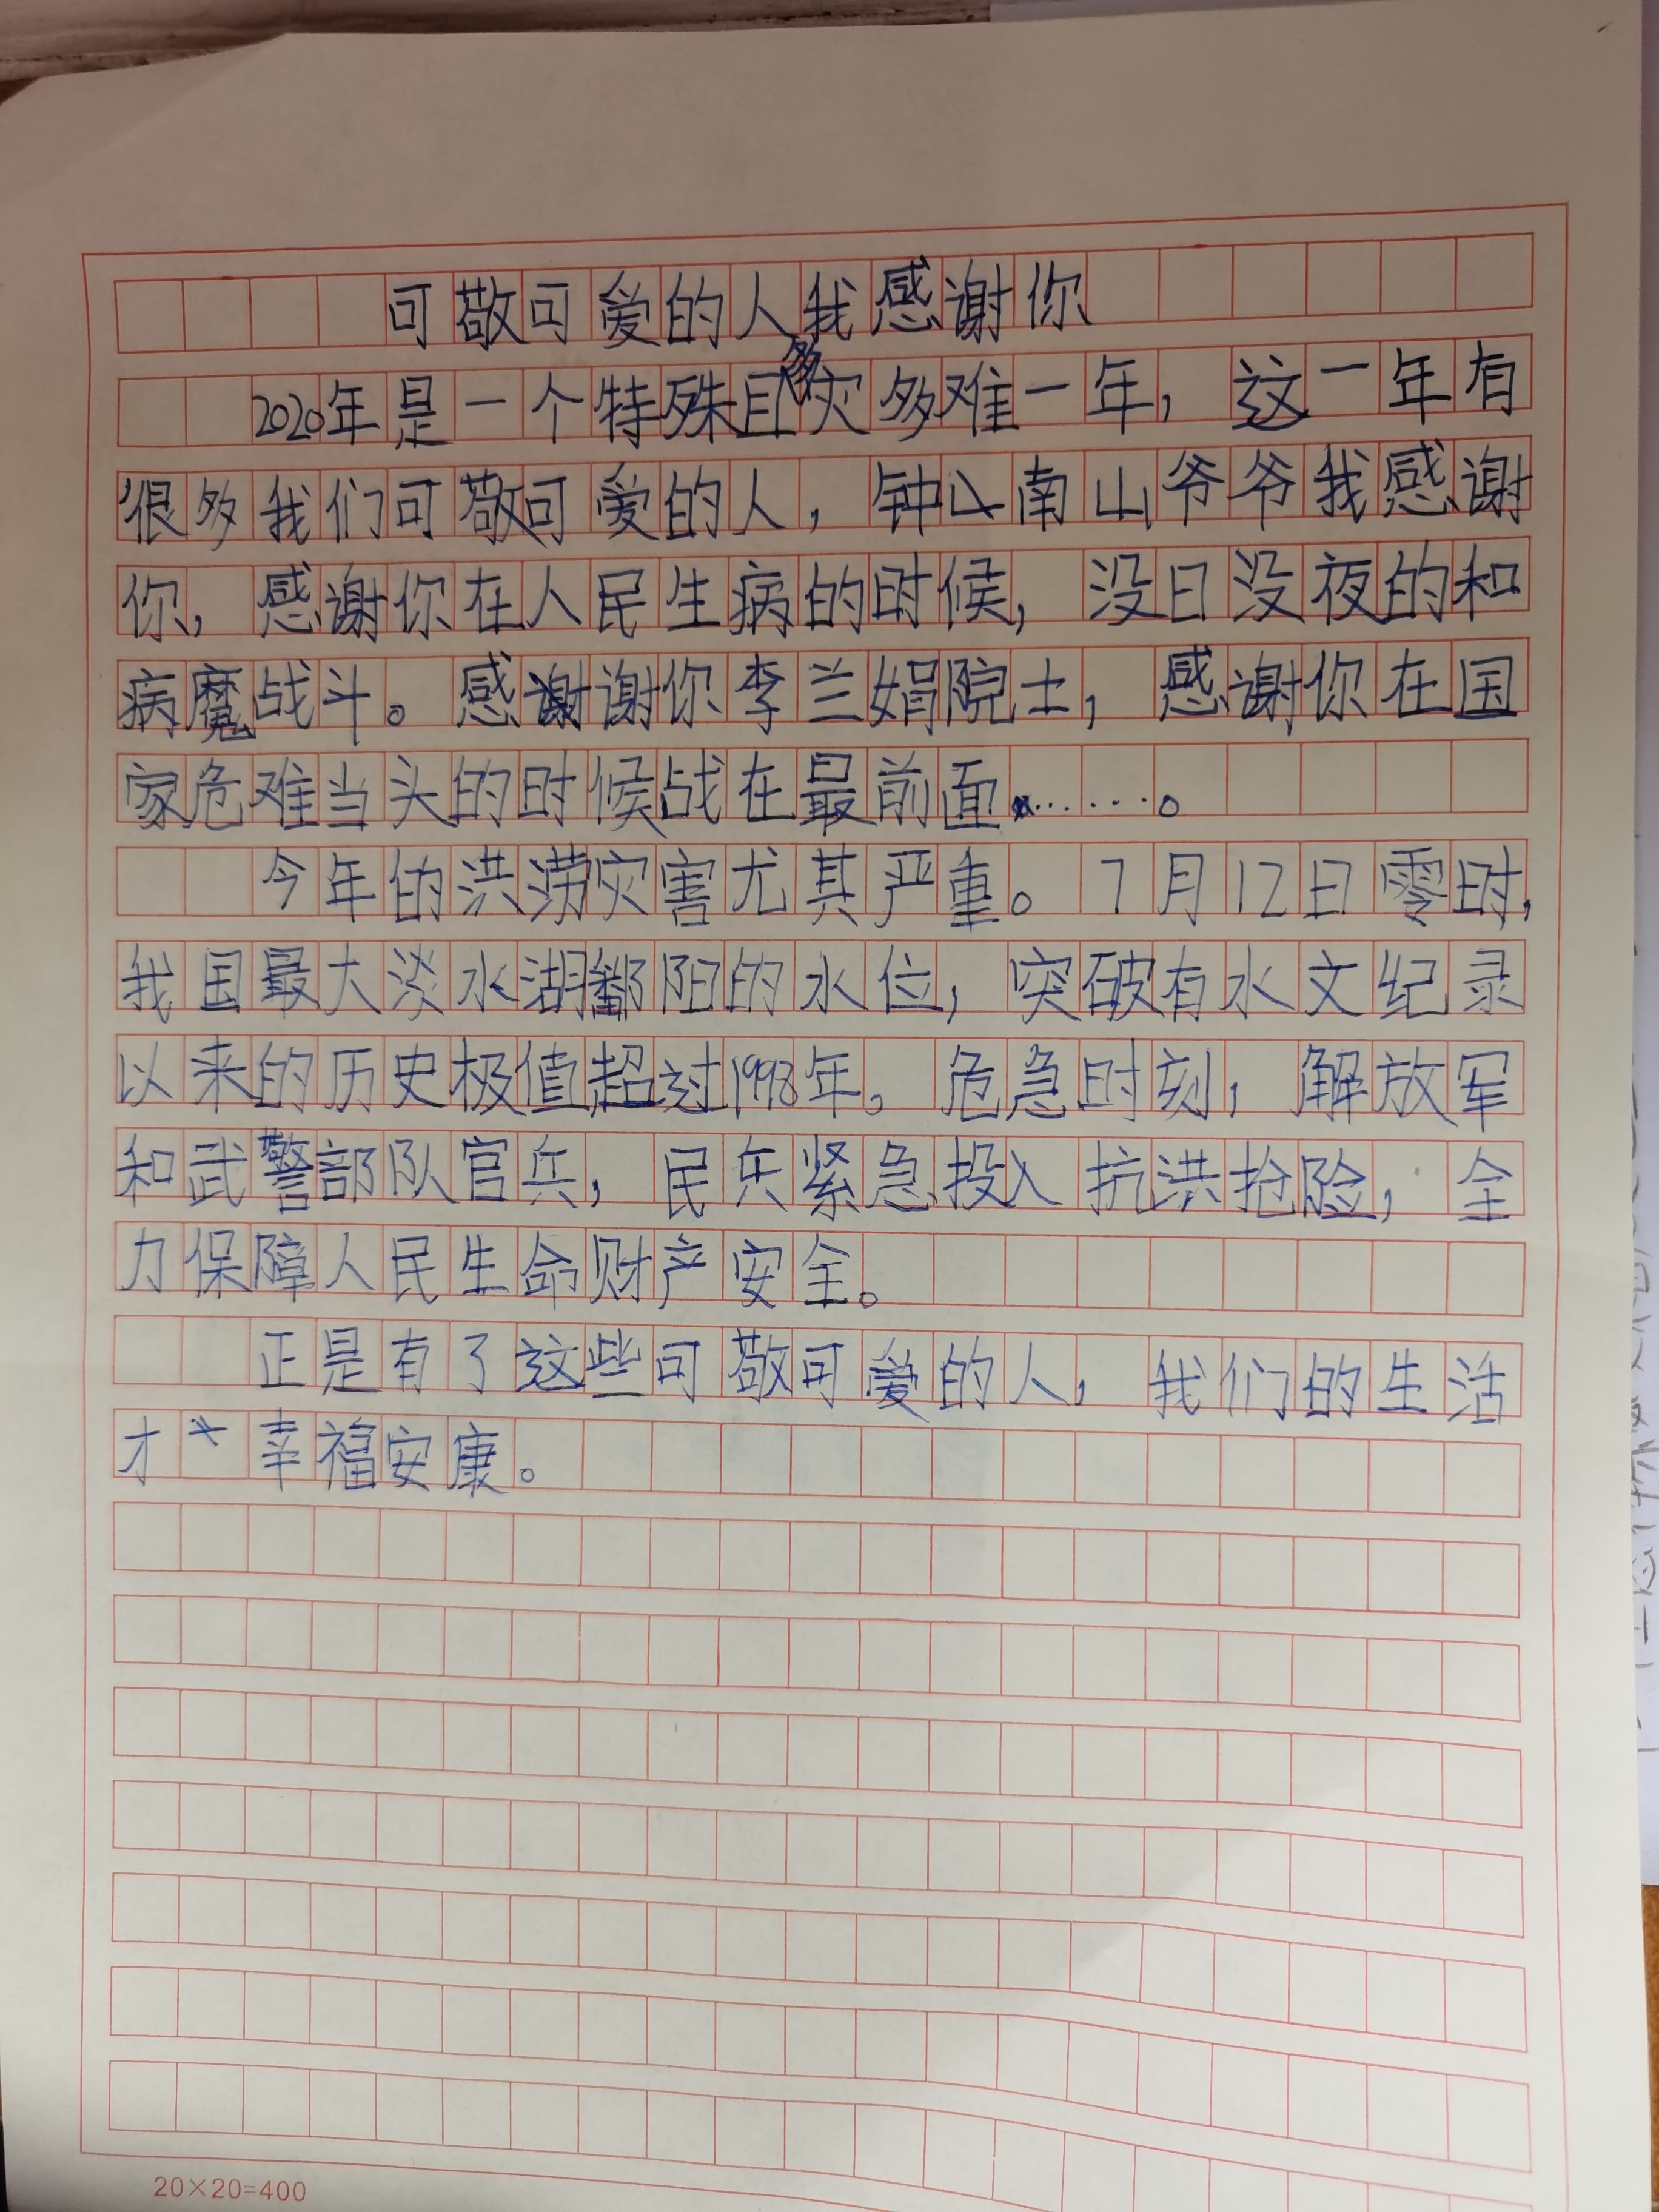 可敬可爱的人我感谢你
2020年是一个特殊且多灾多难一年，这一年有
很多我们可敬可爱的人，钟南山爷爷我感谢
你，感谢你在人民生病的时候，没日没夜的和
病魔战斗。感谢你李兰娟院士，感谢你在国
家危难当头的时候战在最前面……。
今年的洪涝灾害尤其严重。7月12日零时，
我国最大淡水湖鄱阳的水位，突破有水文纪录
以来的历史极值超过1998年。危急时刻，解放军
和武警部队官兵，民兵紧急投入抗洪抢险，全
力保障人民生命财产安全。
正是有了这些可敬可爱的人，我们的生活
才幸福安康。
20×20=400